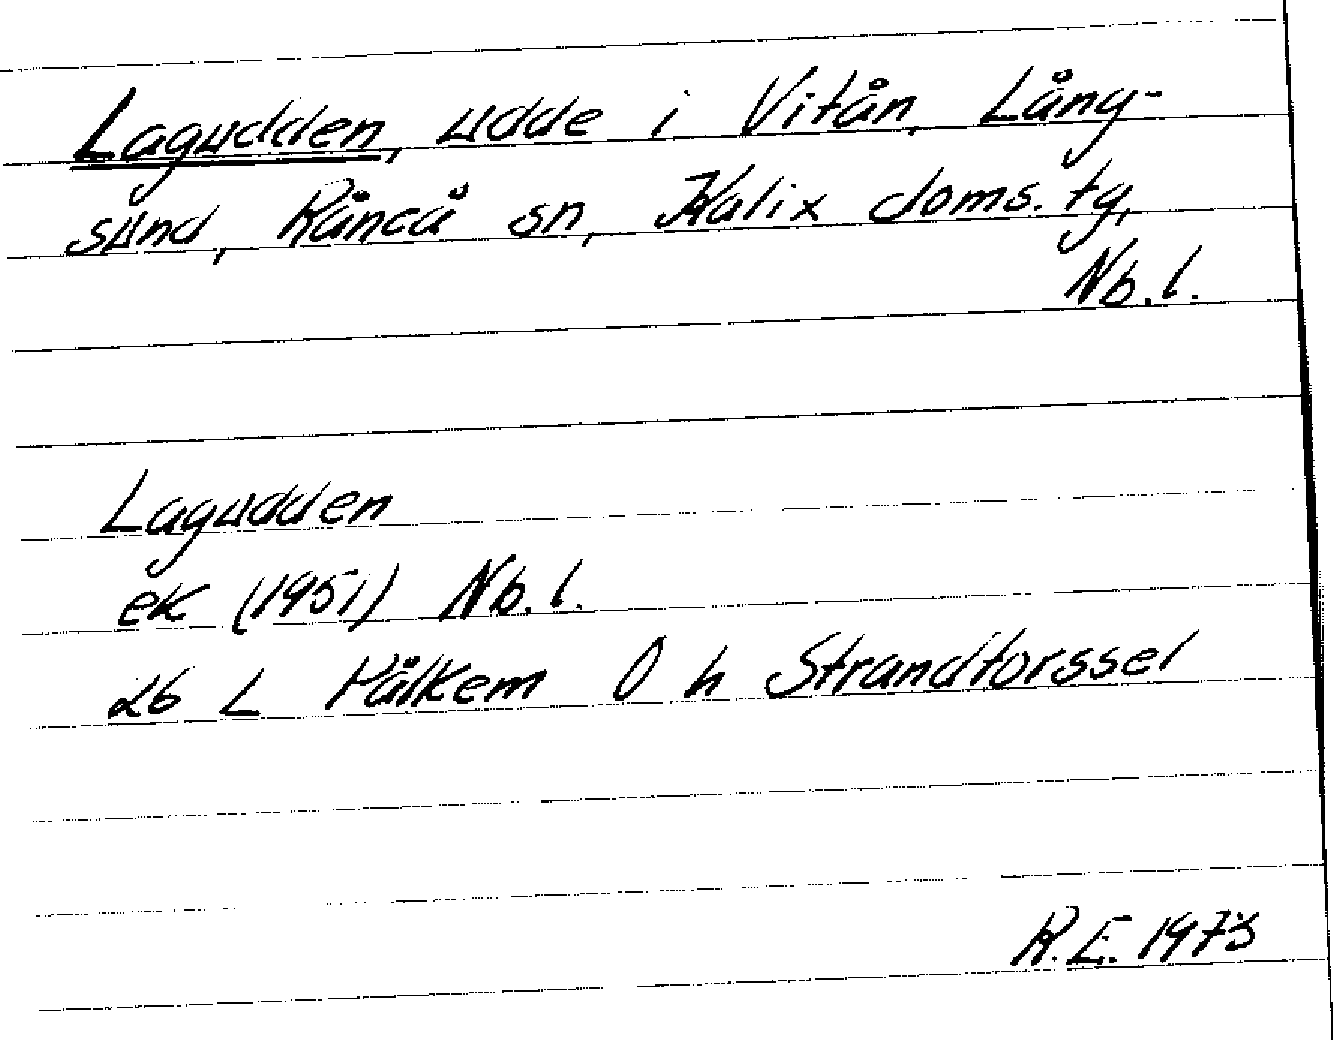 Lagudden, udde i Vitån, Lång-
sund, Råneå sn, Kalix doms. tg,
Nb. l.
Lagudden
ek (1951) Nb. l.
26 L Hålkem O h Strandforssel
R.E. 1973